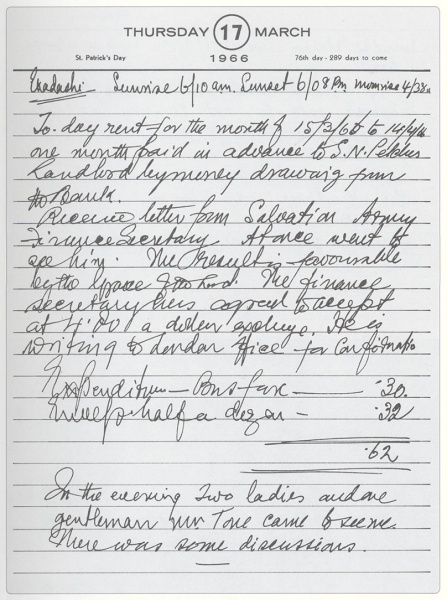 THURSDAY 17 MARCH
St. Patrick's Day 1966 76th day - 289 days to come
Ekadashi Sunrise 6/10 am. Sunset 6/08 Pm moonrise 4/38
To-day rent for the month of 15/3/66 to 14/4/66
one month paid in advance to S.N.
Landlord by money drawing from
the Bank.
Receive letter form Salvation Army
Finance Secretary. At once went to
see him. The result is favourable
by the Grace of the Lord. The finance
secretary has agreed to accept
at 4.00 a dollar exchange. He is
writing to London office for Confirmation
Expenditure — Bus fare — .30.
half a dozen — .32
.62
In the evening Two ladies and one
gentleman mr Tone came to see me.
There was some discussions.